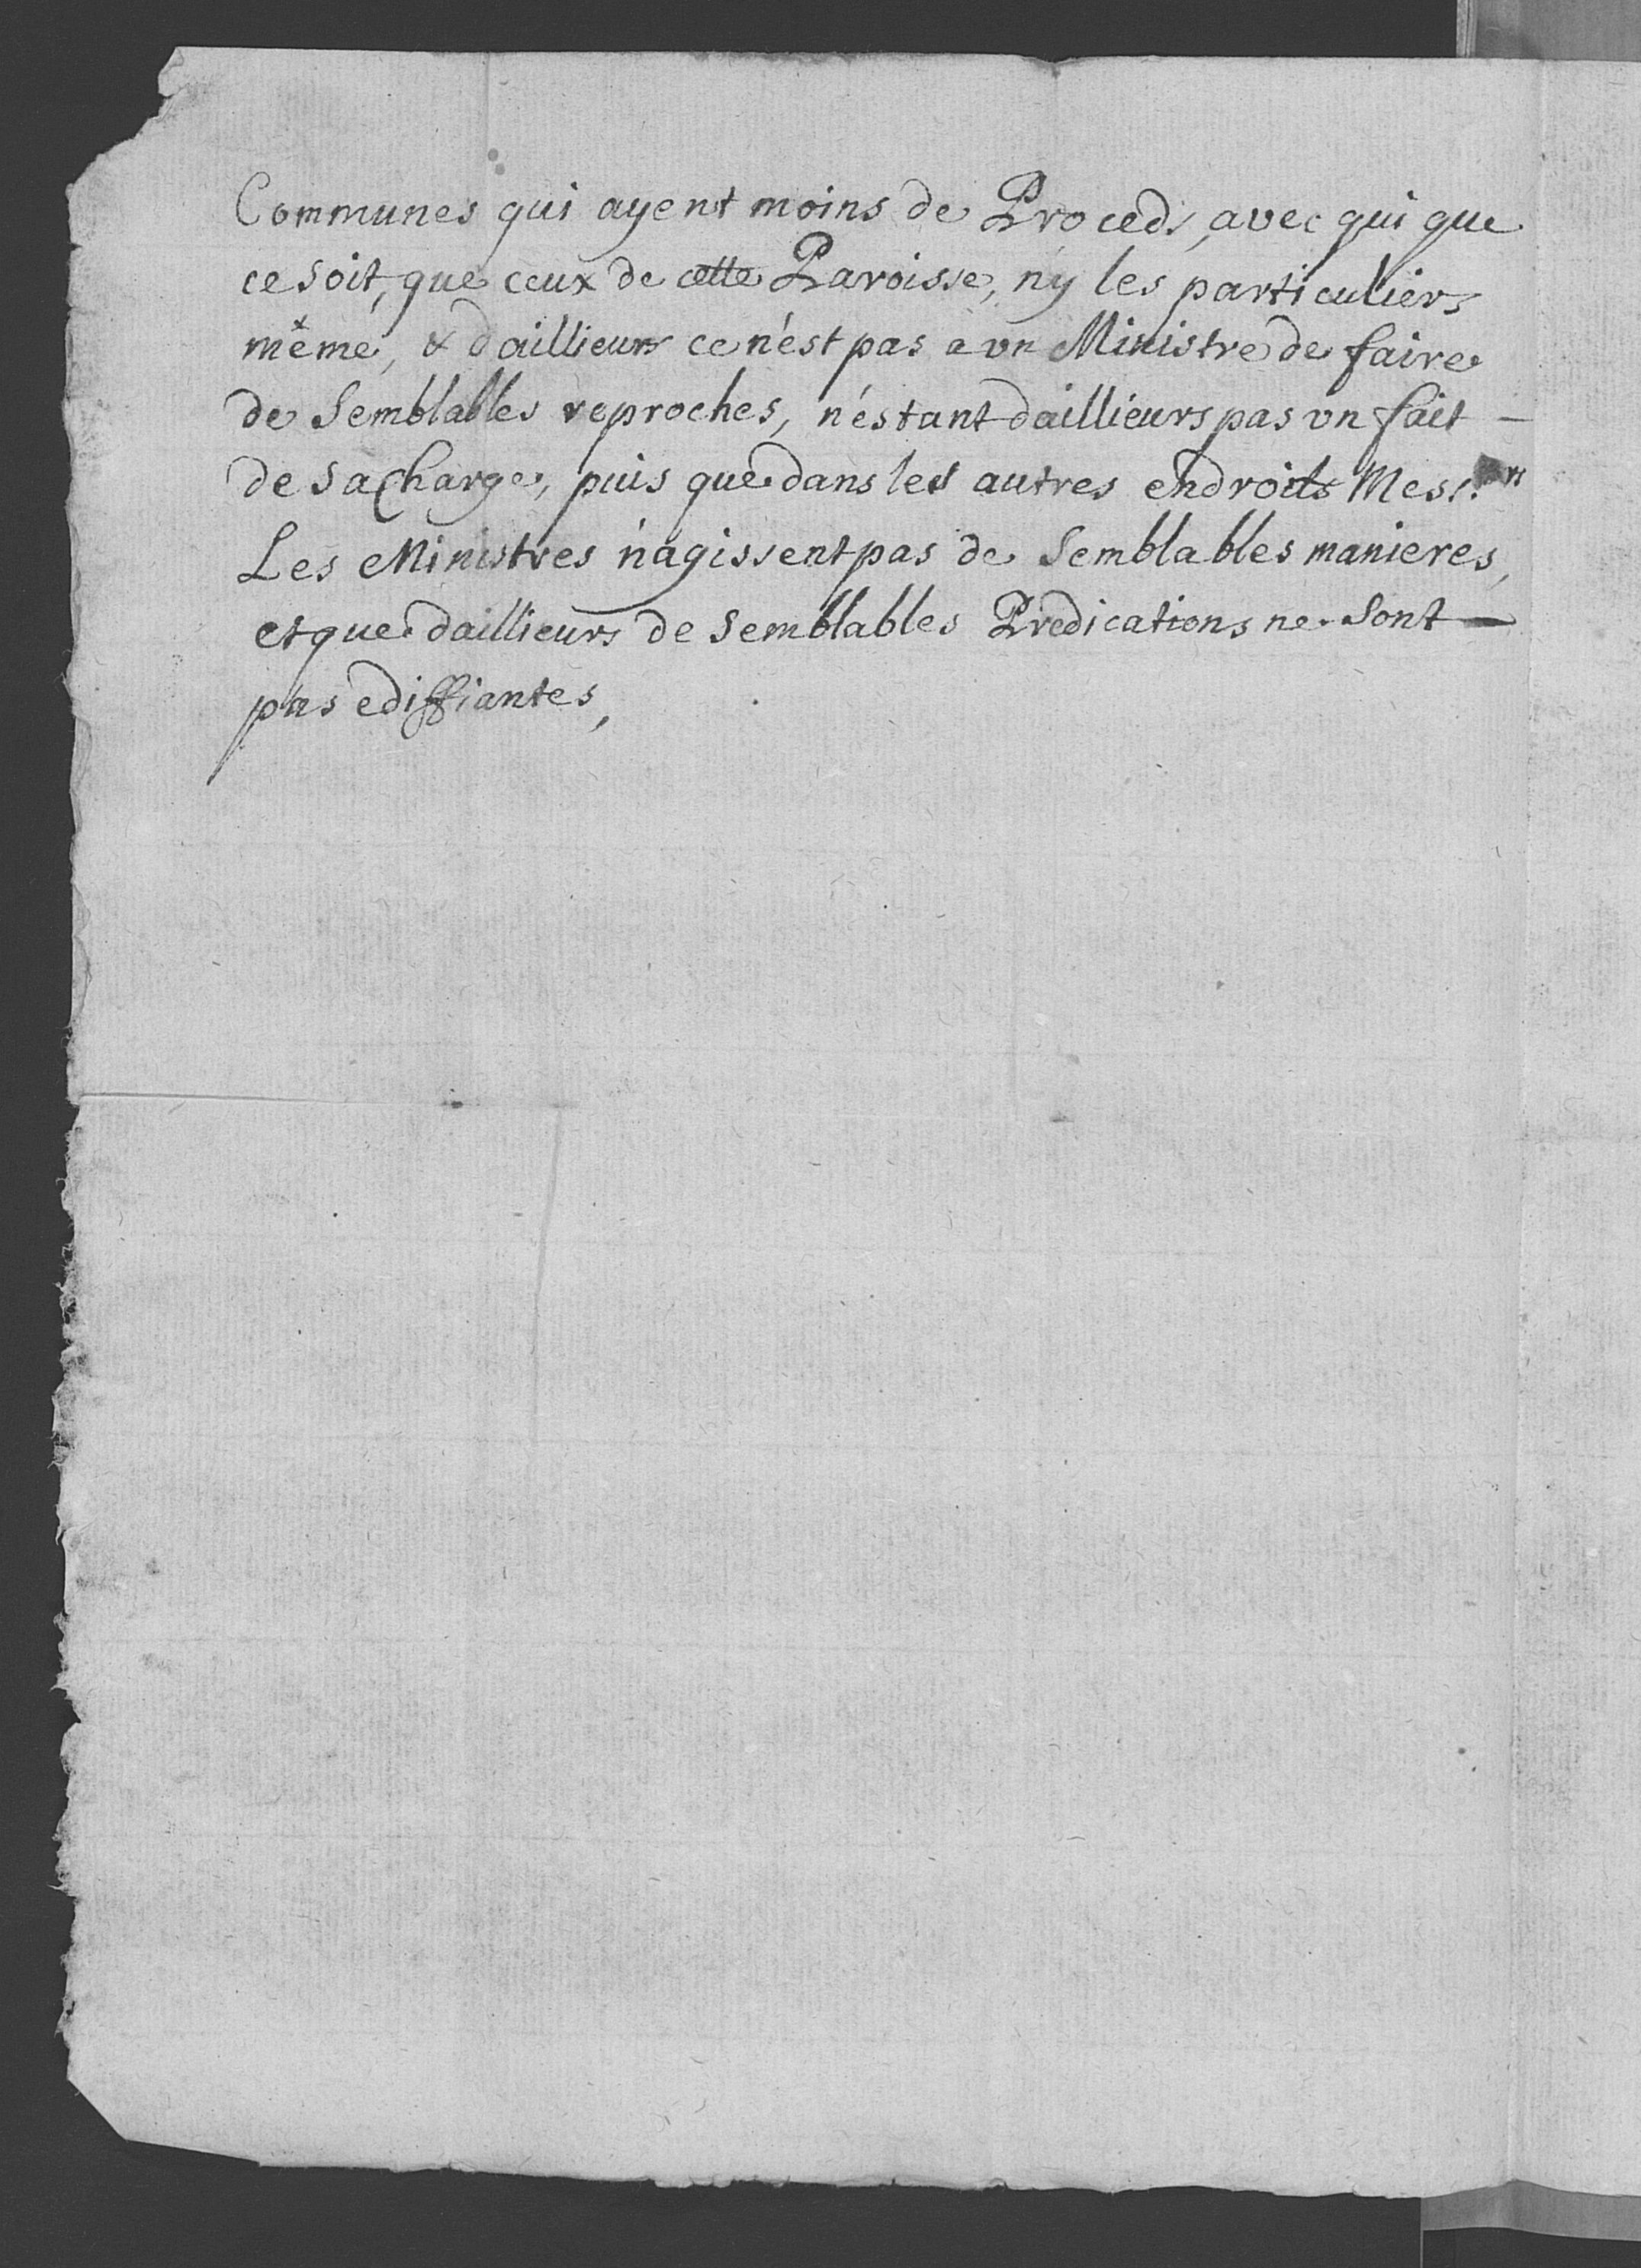 Communes qui ayent moins de Proceds, avec qui que
ce soit, que ceux de cette Paroisse, ny les particuliers
même, & daillieurs ce n'est pas à vn Ministre de faire
de Semblables reproches, n'éstant daillieurs pas vn fait –
de sa Charge, puis que dans les autres endroits Mess.rs
Les Ministres n'agissent pas de Semblables manieres,
et que daillieurs de Semblables Predications ne Sont –
pas ediffiantes,